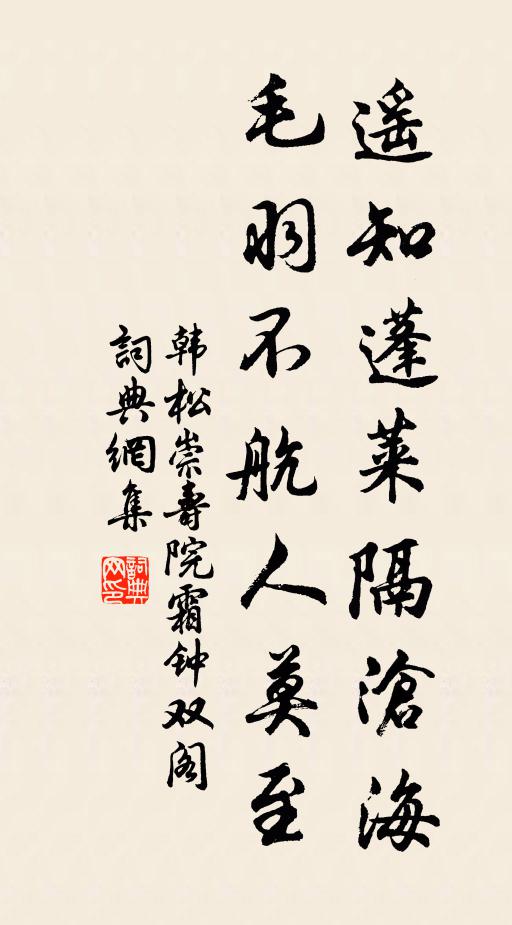 遥知蓬莱隔滄海
毛羽不航人莫至
韩松崇壽院霜钟双阁
詞典網集
詞典网印